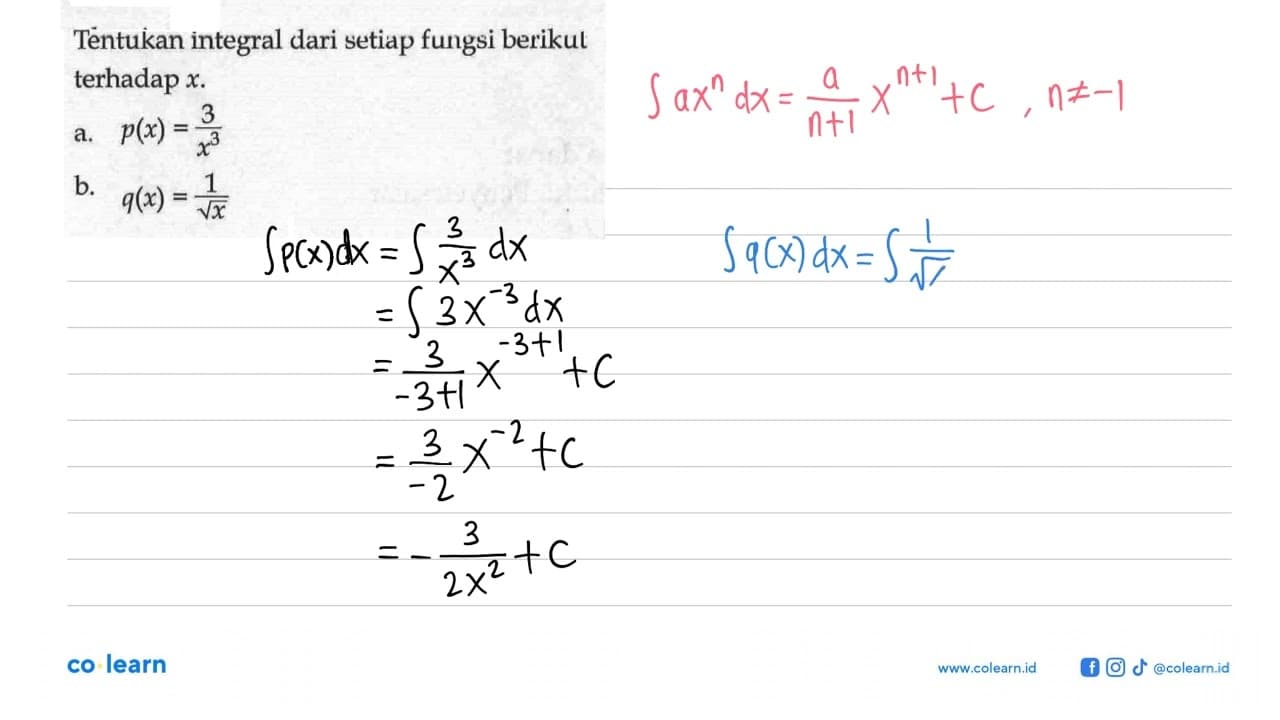 Tentukan integral dari setiap fungsi berikut
terhadap x.
a. p(x) = 3/x³
b. q(x) = 1/√x
∫ axⁿ dx = a/(n+1) xⁿ⁺¹ + C , n ≠ -1
∫p(x)dx = ∫ 3/x³ dx
= ∫ 3x⁻³ dx
= 3/(-3+1) x⁻³⁺¹ + C
= 3/-2 x⁻² + C
= - 3/2x² + C
∫ q(x) dx = ∫ 1/√
co learn
www.colearn.id
@colearn.id